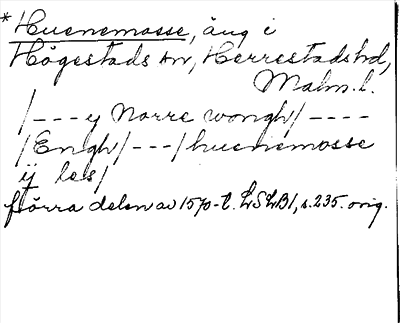 *Huenemosse, äng i
Högestads sn, Herrestads hd,
Malm. l.
/---y Norre wongh/----
/Engh/---/huenemosse
ÿ les/
förra delen av 1570-t. LSLB1, s. 235. orig.